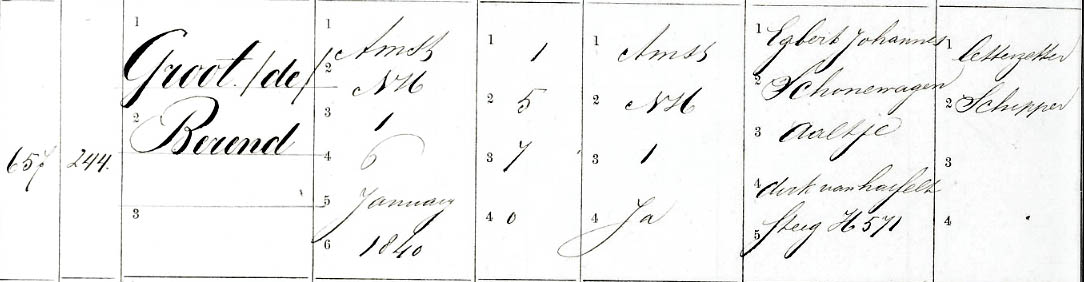 657
244.
1
Groot. /de/
2
Berend
3
1 Amst
2 NH
3 1
4 6
5 January
6 1840
1 1
2 5
3 7
4 0
1 Amst
2 NH
3 1
4 Ja
1 Egbert Johannes
2 Schonewagen
3 Aaltje
4 dirk van hasselt
5 Steeg H 571
1 letterzetter
2 Schipper
3
4